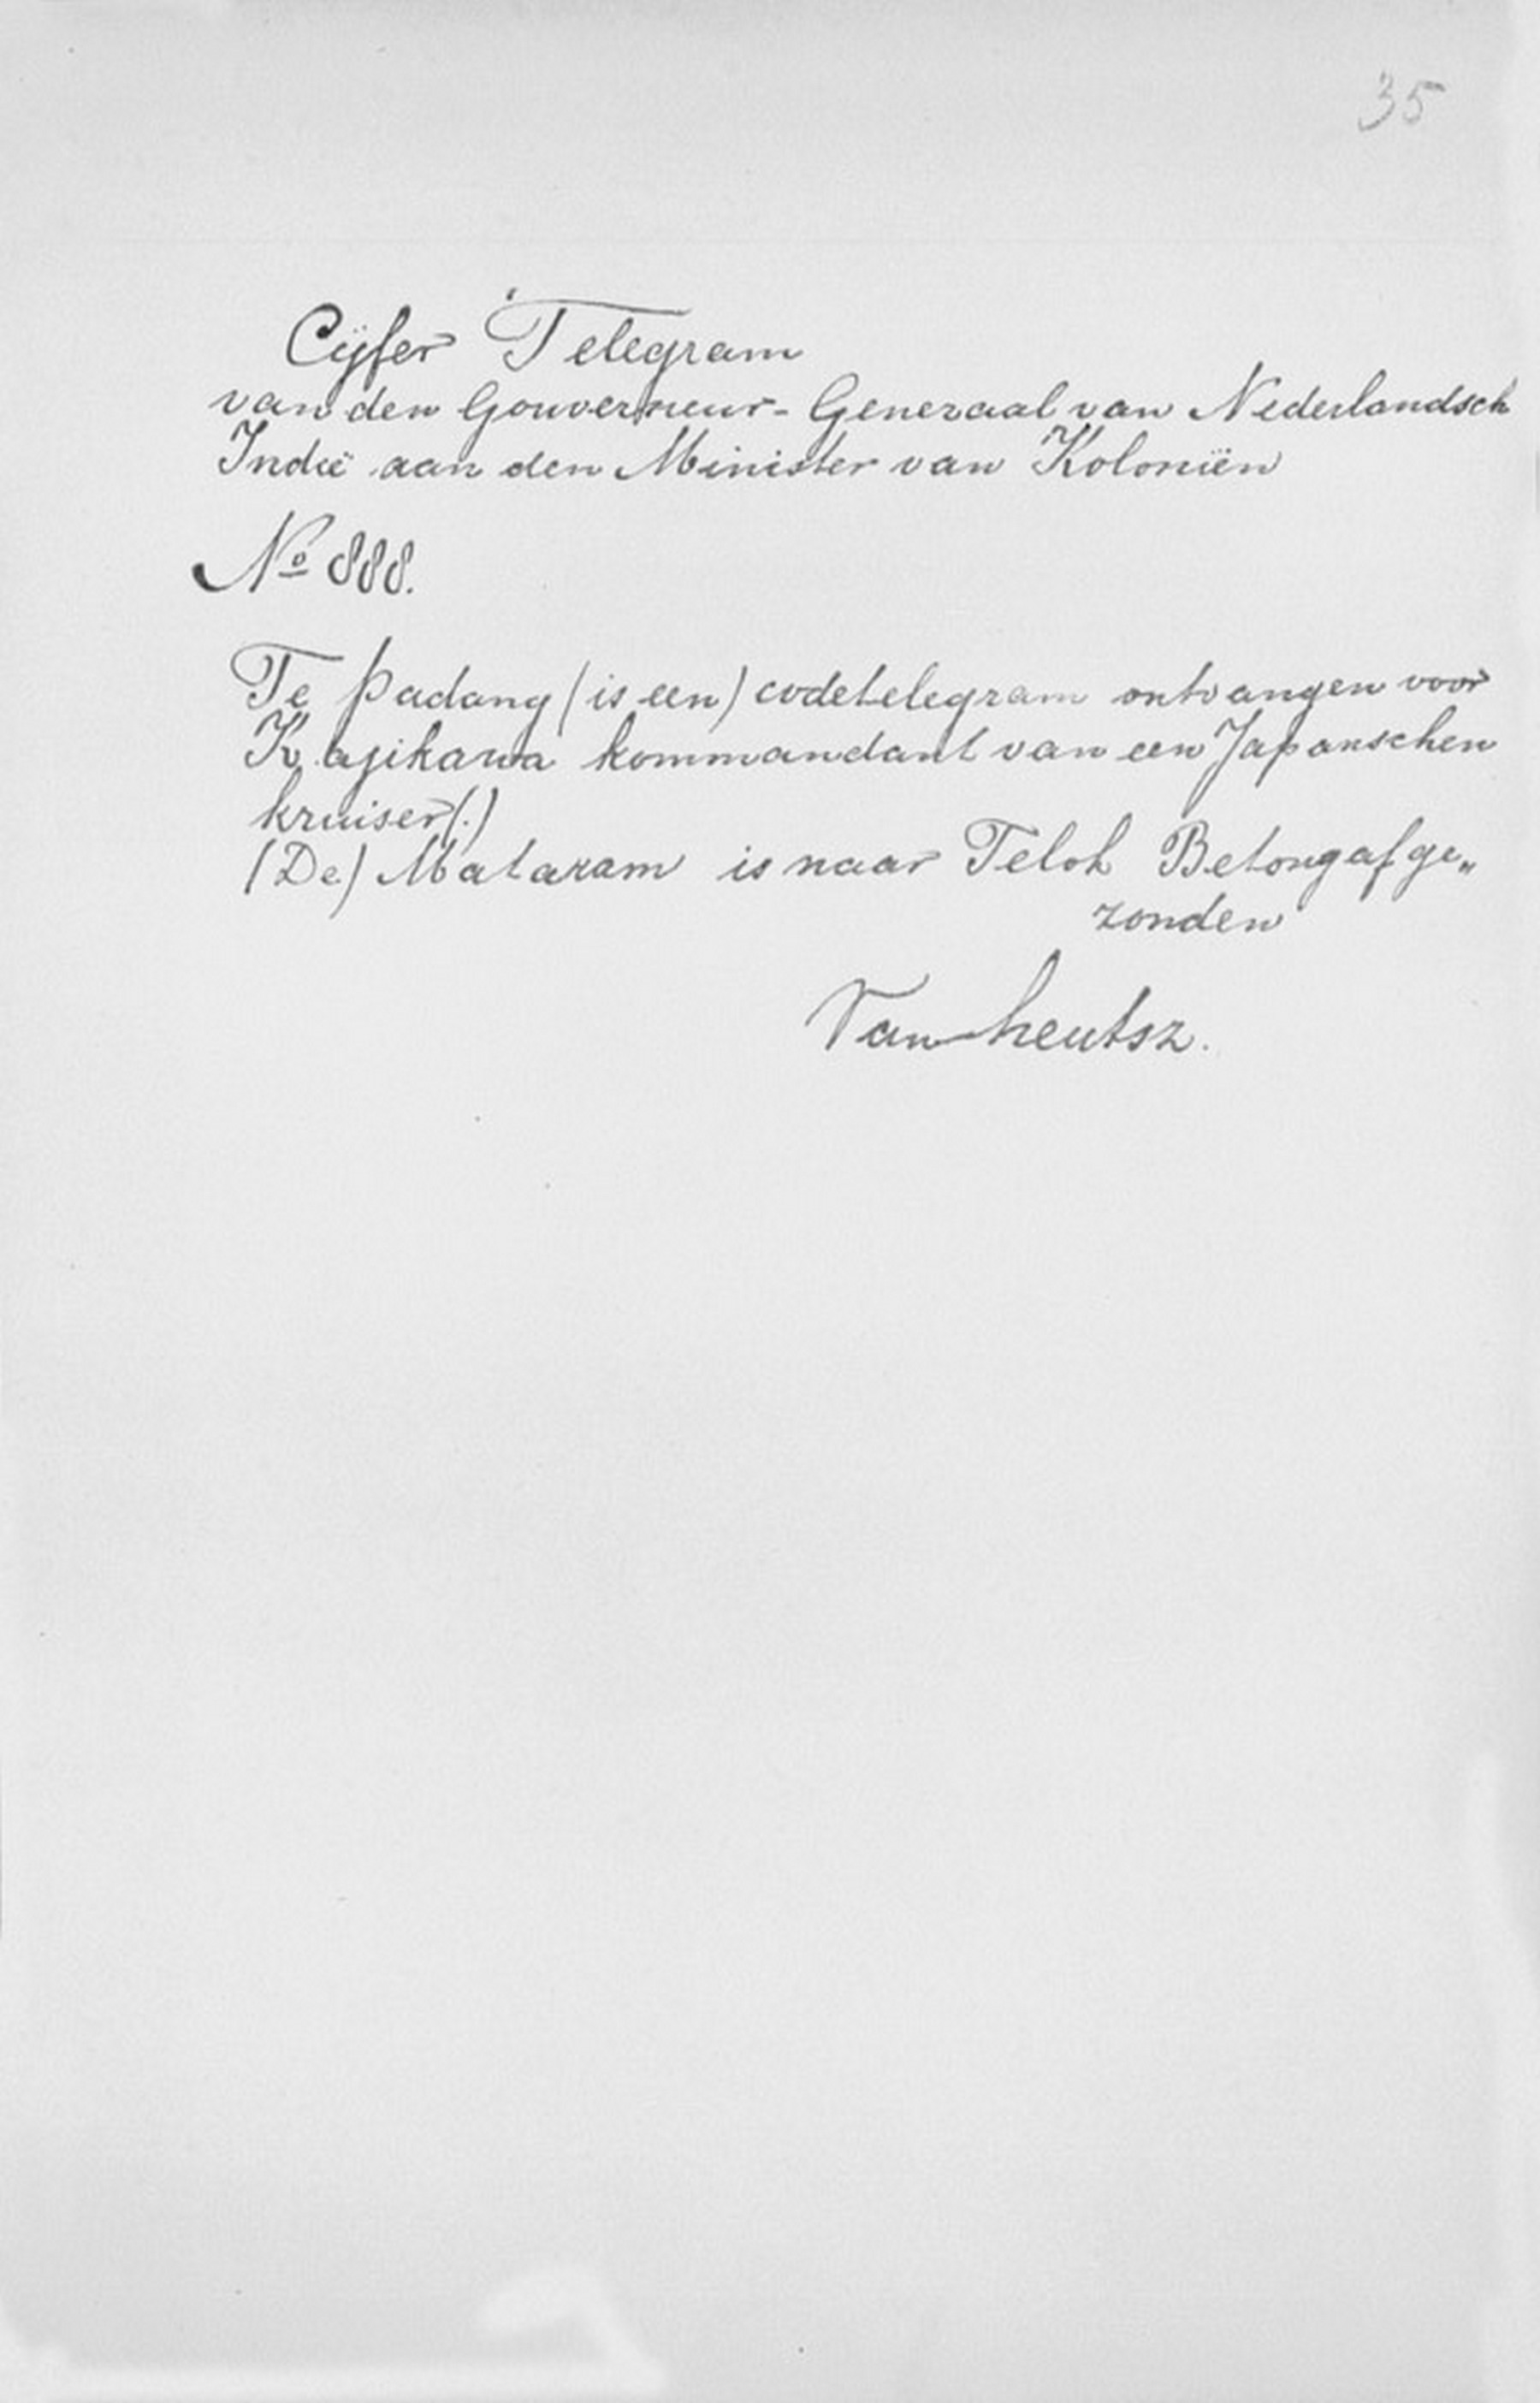 35
Cijfer Telegram
van den Gouverneur-Generaal van Nederlandsch
Indië aan den Minister van Koloniën
No 888.
Te Padang (is een) codetelegram ontvangen voor
Kajikawa kommandant van een Japanschen
kruiser(.)
(De) Mataram is naar Teloh Betong afge„
zonden
Van heutsz.